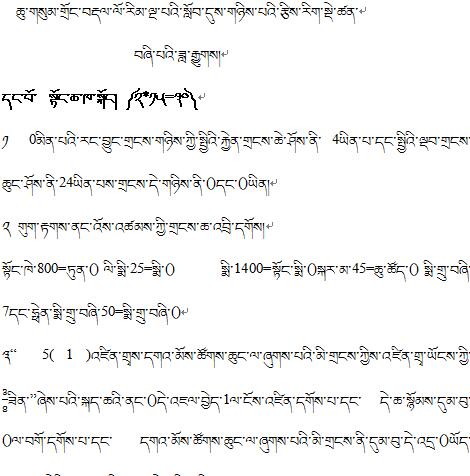 ཆུ་གསུམ་གྲོང་བརྡལ་ལོ་རིམ་ལྔ་པའི་སློབ་དུས་གཉིས་པའི་རྩིས་རིག་སྡེ་ཚན་
བཞི་པའི་ཟླ་རྒྱུགས།
དང་པོ། སྟོང་ཆ་ཁ་སྐོང༌། (༢*༡༥=༣༠)
༡ 0མིན་པའི་རང་བྱུང་གྲངས་གཉིས་ཀྱི་སྤྱིའི་རྐྱེན་གྲངས་ཆེ་ཤོས་ནི་ 4ཡིན་པ་དང་སྤྱིའི་ལྡབ་གྲངས་
ཆུང་ཤོས་ནི་24ཡིན་པས་གྲངས་དེ་གཉིས་ནི་()དང་()ཡིན།
༢ གུག་རྟགས་ནང་འོས་འཚམས་ཀྱི་གྲངས་ཆ་འབྲི་དགོས།
སྟོང་ཁེ་800=ཏུན་() ལི་སྨི་25=སྨི་() སྨི་1400=སྟོང་སྨི་()སྐར་མ་45=ཆུ་ཚོད་() སྨི་གྲུ་བཞི་
7དང་ཧྥེན་སྨི་གྲུ་བཞི་50=སྨི་གྲུ་བཞི་()
༣“ 5( 1 )འཛིན་གྲྭས་དགའ་མོས་ཚོགས་ཆུང་ལ་ཞུགས་པའི་མི་གྲངས་ཀྱིས་འཛིན་གྲྭ་ཡོངས་ཀྱི་
ཟིན་”ཞེས་པའི་སྐད་ཆའི་ནང་()དེ་འཇལ་བྱེད་1ལ་ངོས་འཛིན་དགོས་པ་དང་ དེ་ཆ་སྙོམས་དུམ་བུ་
()ལ་བགོ་དགོས་པ་དང་ དགའ་མོས་ཚོགས་ཆུང་ལ་ཞུགས་པའི་མི་གྲངས་ནི་དུམ་བུ་དེ་འདྲ་()ཡོད་